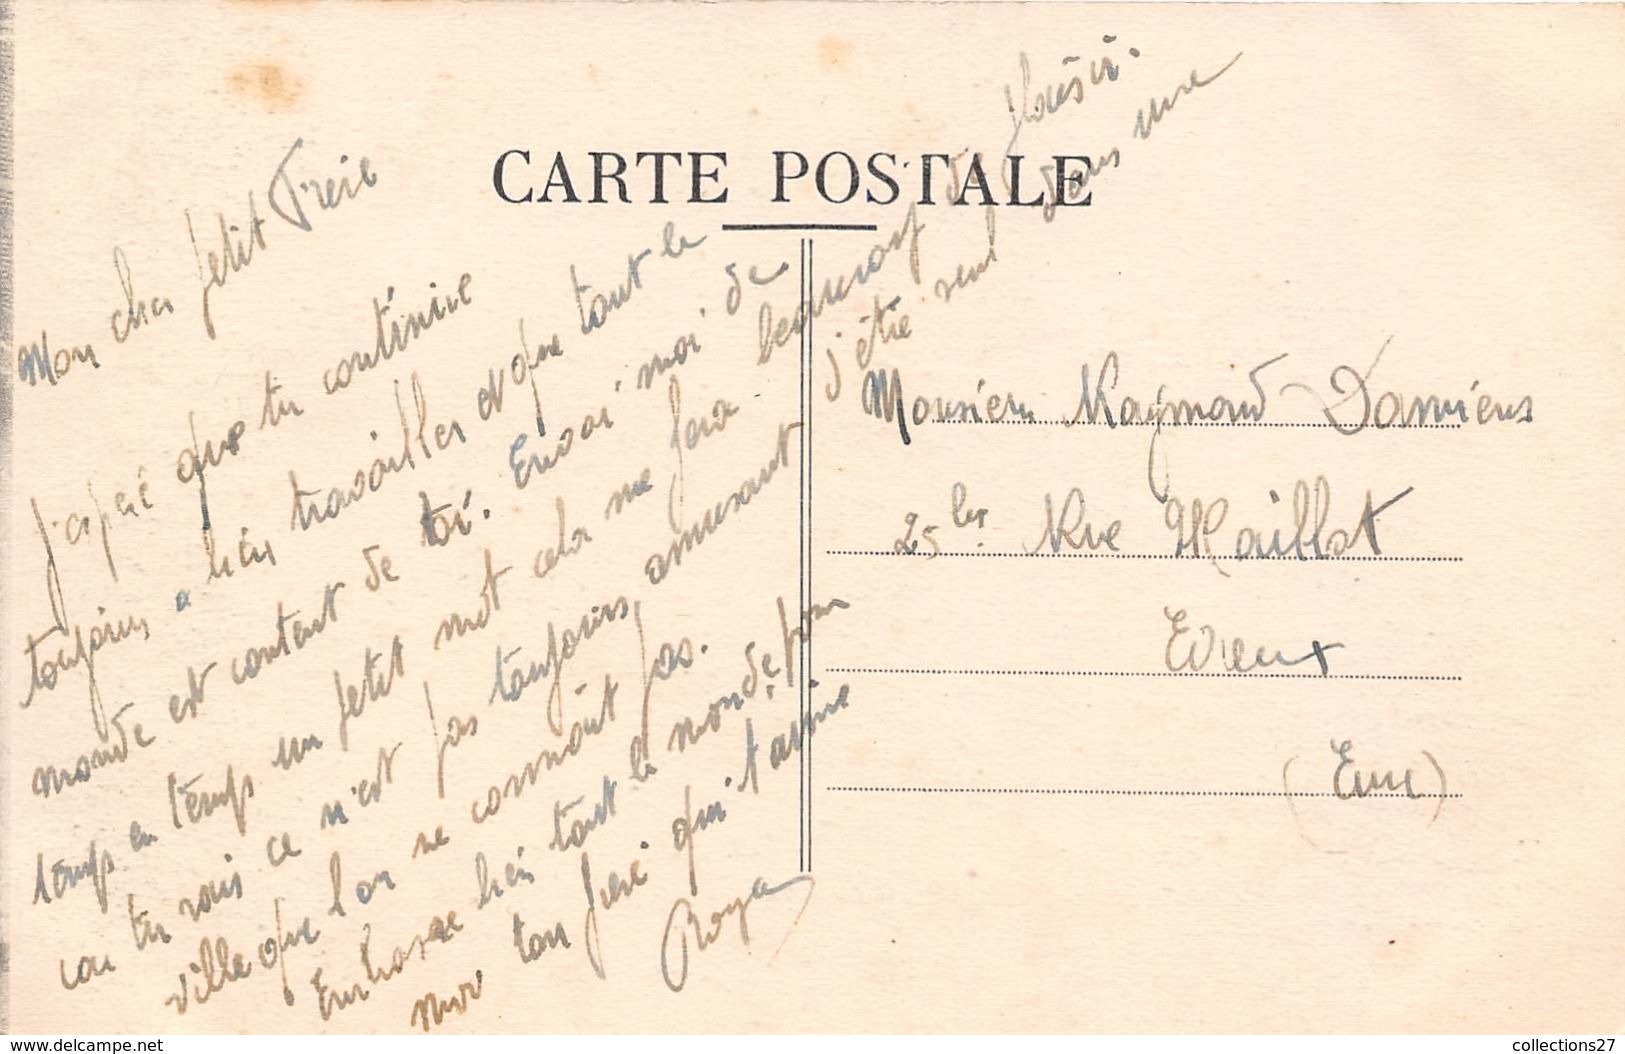 CARTE POSTALE
Mon cher petit Frère
J'espère que tu continue
toujours a bien travailler et que tout le
monde est content de toi. Envoi moi de
temps en temps un petit mot cela me fera beaucoup de plaisir.
car tu vois ce n'est pas toujours amusant d'être seul dans une
ville que l'on ne connait pas.
Embrasse bien tout le monde pour
moi ton frère qui t'aime
Roya
Monsieur Raymond Damiens
25 bis Rue Maillot
Evreux
(Eure)
www.delcampe.net
collections27